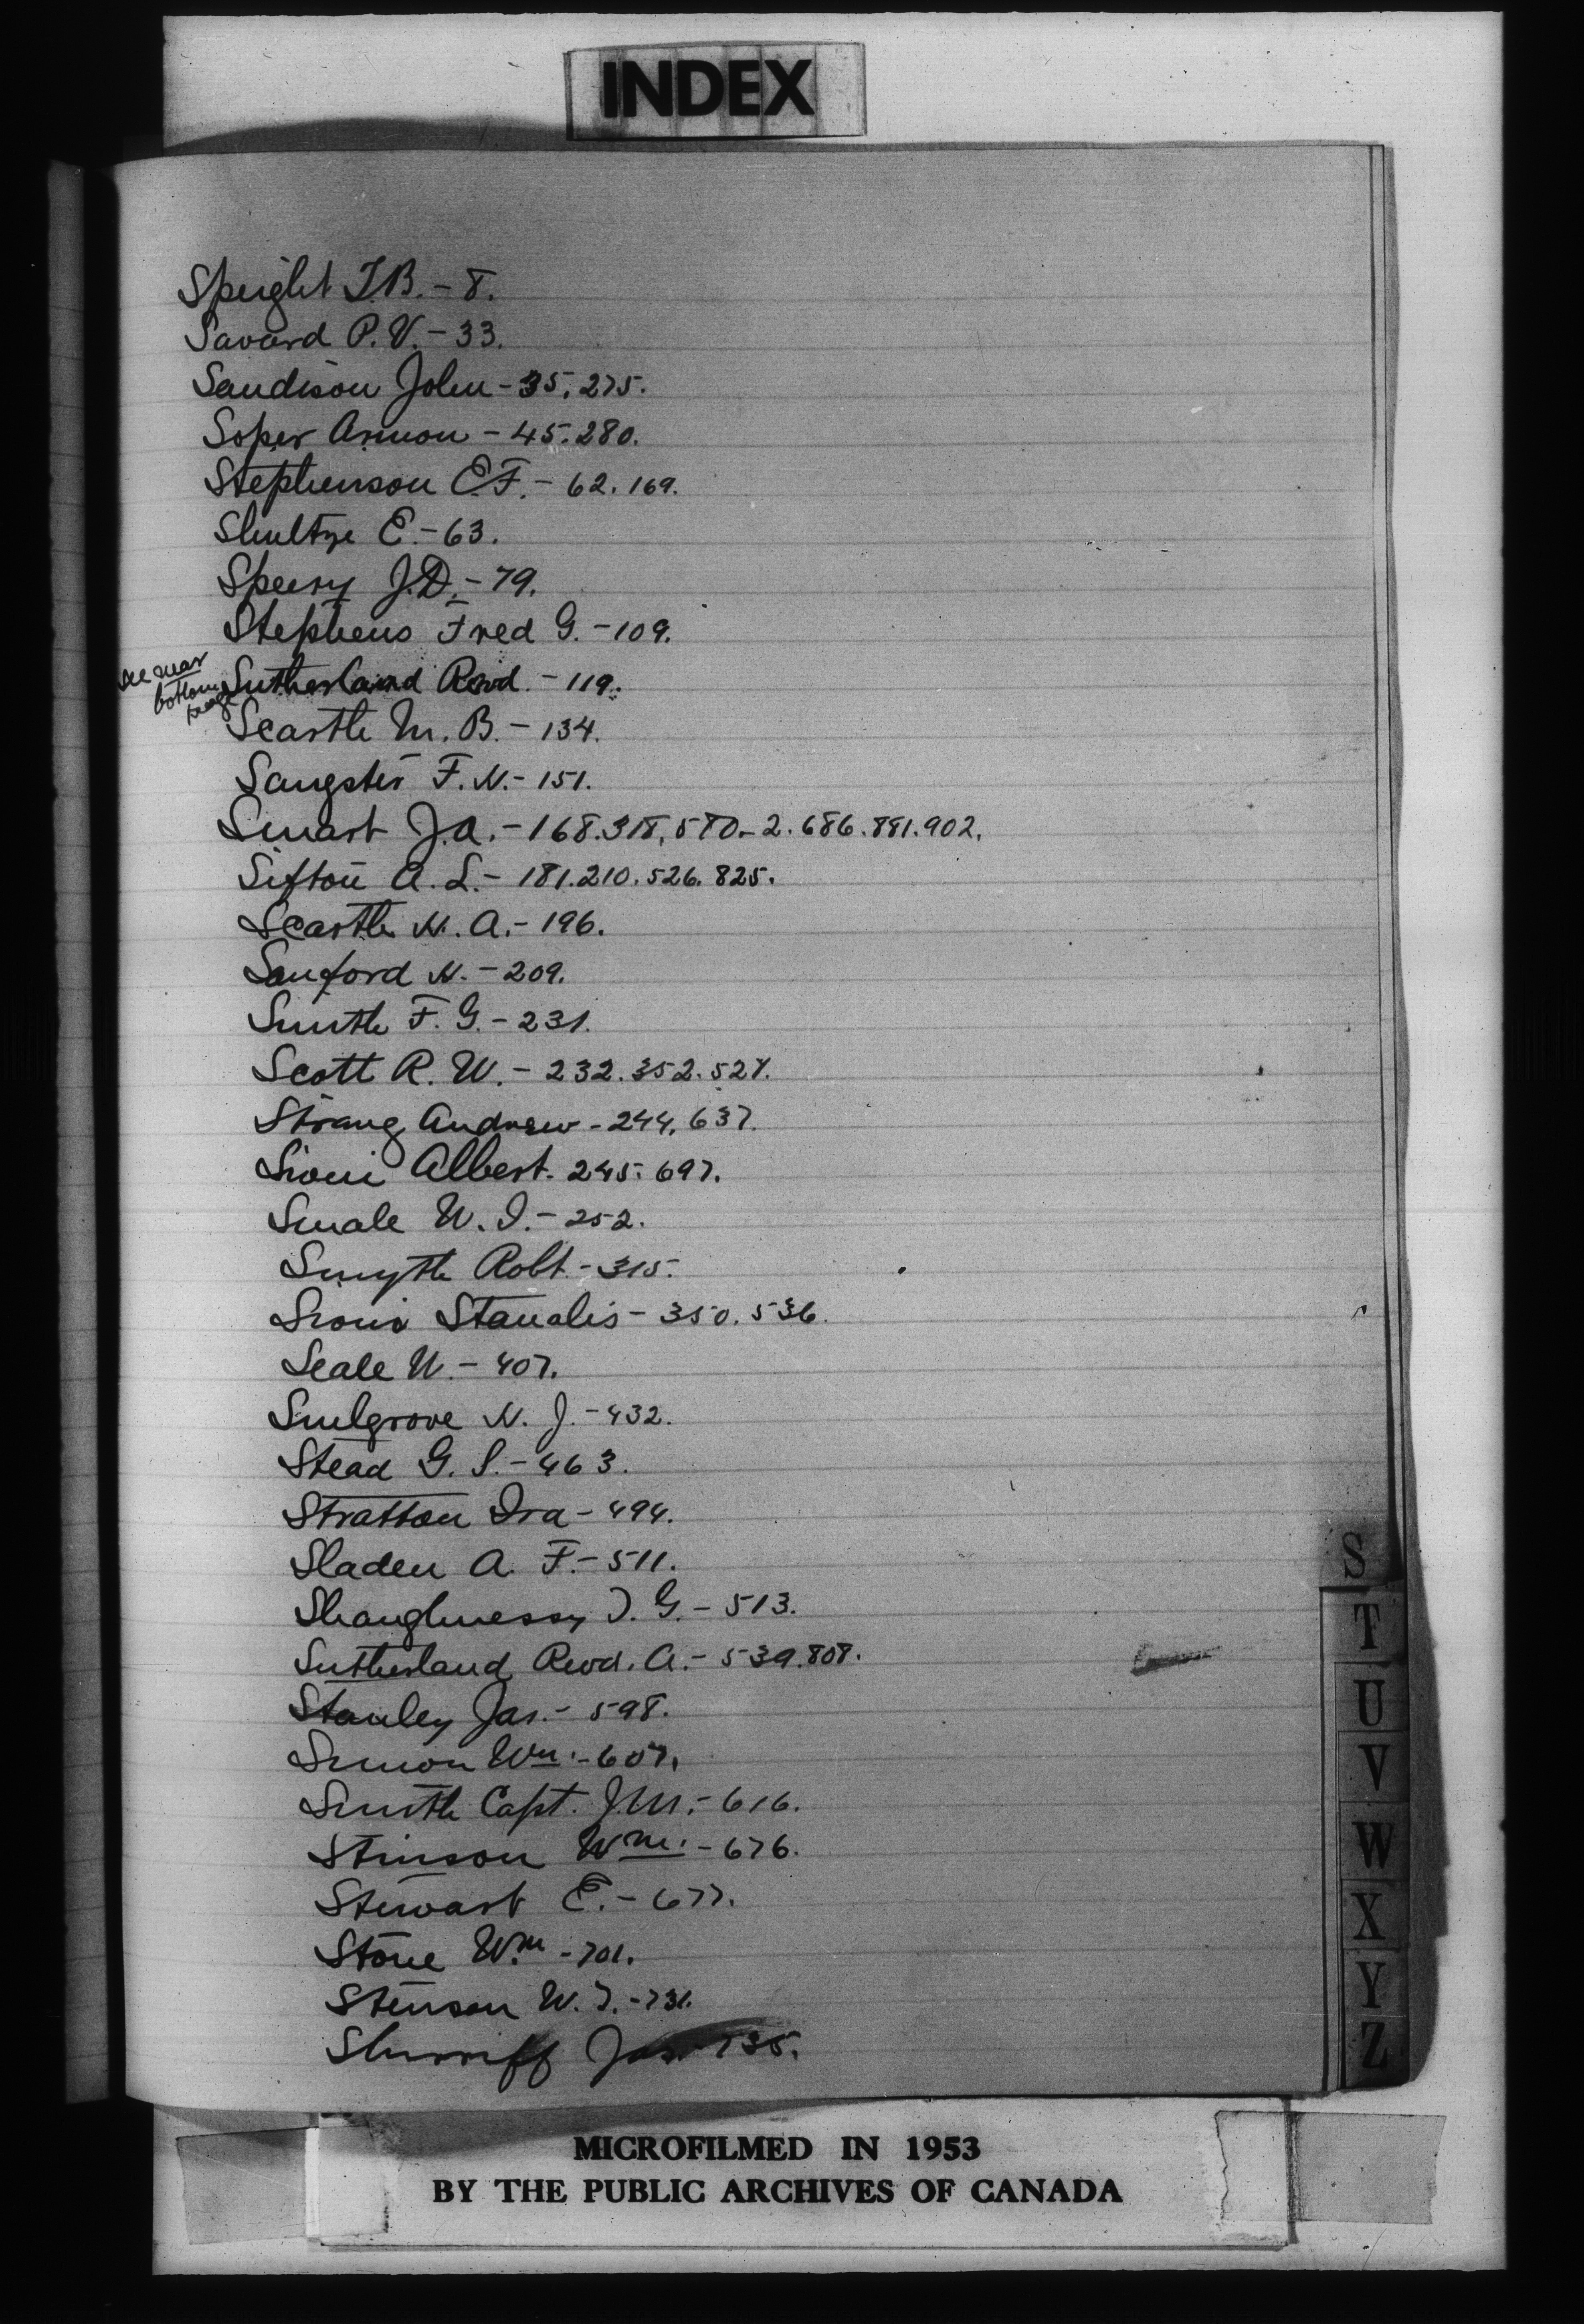 INDEX
Speight T.B. - 8.
Savard P.V. - 33.
Sandison John - 35. 275.
Soper Armon - 45. 280.
Stephenson E.F. - 62. 169.
Shultze E. - 63.
Speery J.D. - 79.
Stephens Fred G. - 109.
see near bottom page
Sutherland Revd. - 119.
Scarth M. B. - 134.
Sangster F. N. - 151.
Smart J.A. - 168. 318. 580-2. 686. 891. 902.
Sifton A. L. - 181. 210. 526. 825.
Scarth N. A. - 196.
Sanford N. - 209.
Smith F. G. - 231.
Scott R. W. - 232. 352. 527.
Strang Andrew - 244. 637.
Sioui Albert - 245. 697.
Smale W. I. - 252.
Smyth Robt - 315.
Sioui Stanalis - 350. 536.
Seale W. - 407.
Smelgrove N. J. - 432.
Stead G. S. - 463.
Stratton Ira - 494.
Sladen A. F. - 511.
Shaughnessy T. G. - 513.
Sutherland Revd. A. - 539. 808.
Stanley Jas. - 598.
Simon Wm. - 607.
Smith Capt. J.M. - 616.
Stinson Wm. - 676.
Stewart E. - 677.
Stone Wm - 701.
Stenson W. T. - 731.
Shurriff Jas. 735.
S
T
U
V
W
X
Y
Z
MICROFILMED IN 1953
BY THE PUBLIC ARCHIVES OF CANADA